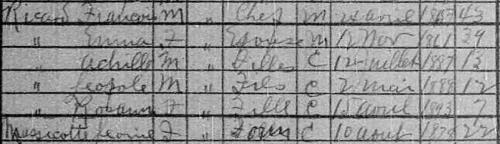 Ricard François M " Chef M 24 avril 1857 43
" Emma F " Epouse M 12 Nov 1861 39
" Achille M " Filles C 12 juillet 1887 13
" Leopole M " Fils C 2 Mai 1888 12
" F " Fille C 15 avril 1893 7
Massicotte F " C 10 aout 1878 22